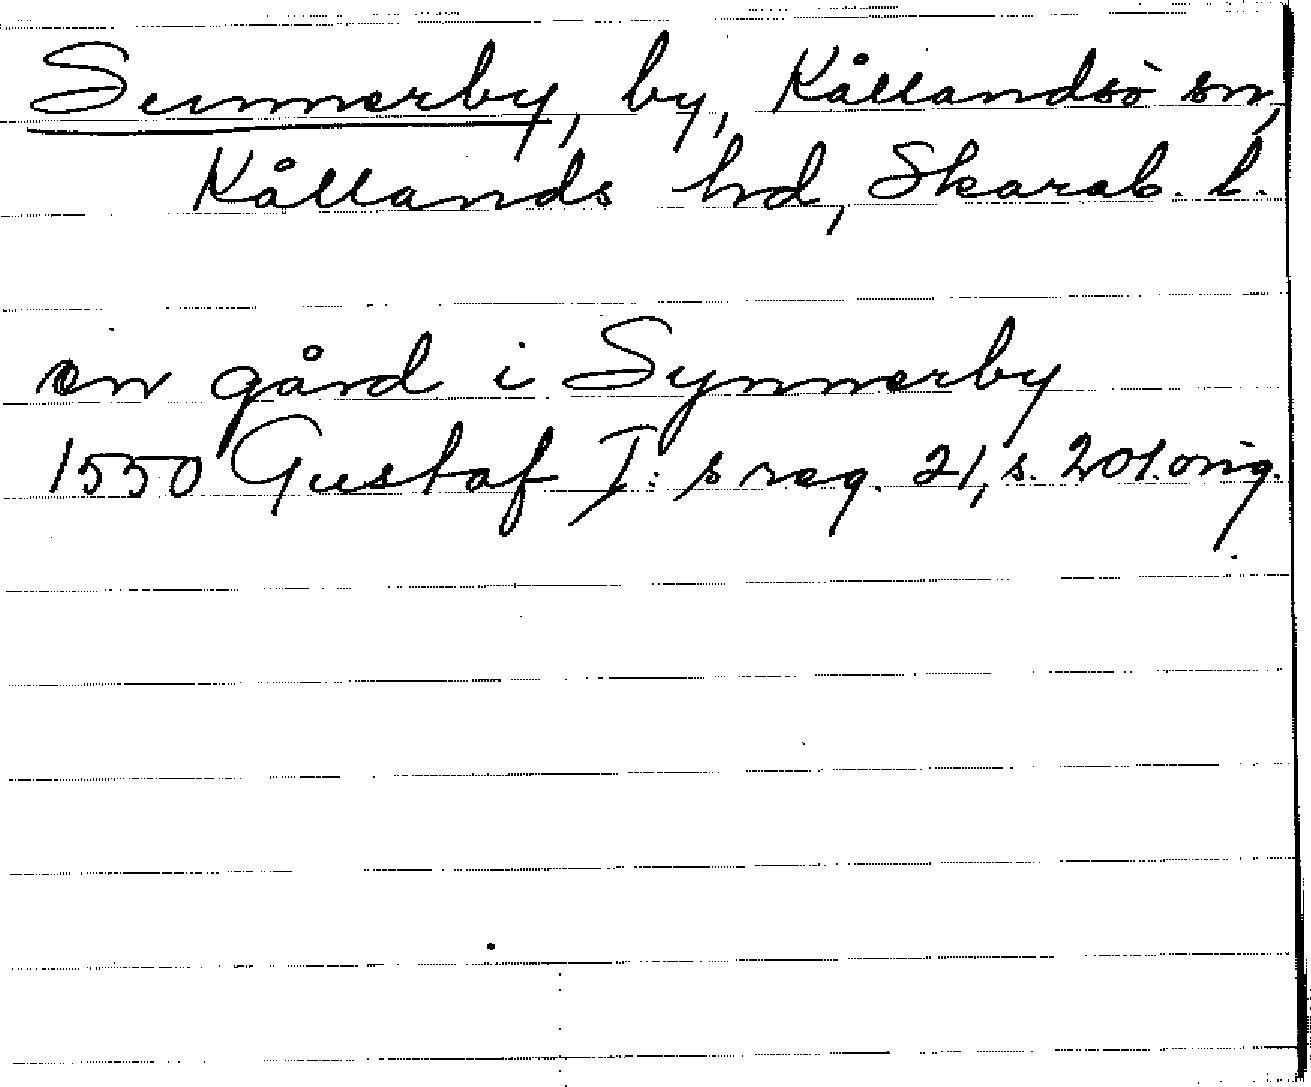 Sunnerby, by, Kållandsö sn,
Kållands hd, Skarab. l.
en gård i Synnerby
1550 Gustaf I:s reg. 21, s. 201. orig.